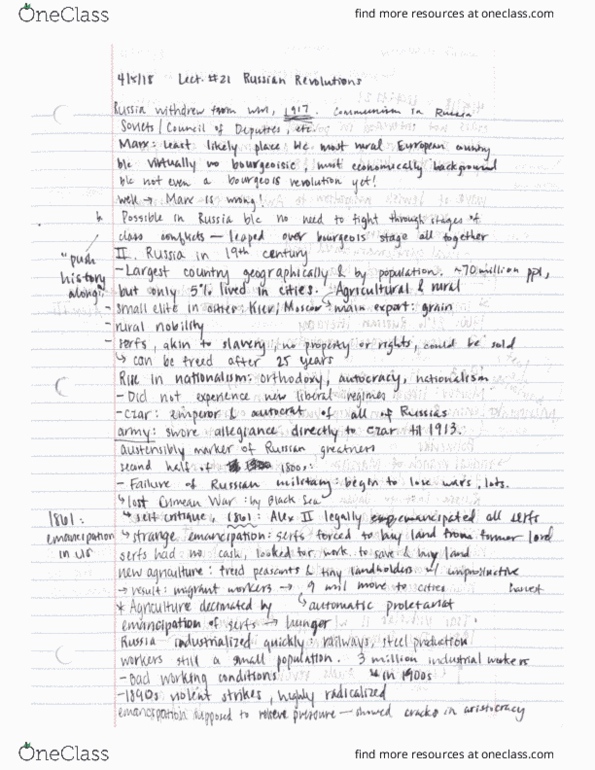 OneClass
find more resources at oneclass.com
4/5/18 Lect. #21 Russian Revolutions
Russia withdrew from WWI, 1917. Communism in Russia
Soviets/Council of Deputies, etc.
Marx: least likely place b/c most rural European country
b/c virtually no bourgeoisie, most economically background
b/c not even a bourgeois revolution yet!
well → Marx is wrong!
↳ Possible in Russia b/c no need to fight through stages of
class conflicts — leaped over bourgeois stage all together
"push
history
along"
II. Russia in 19th century
-Largest country geographically & by population. ~70 million ppl,
but only 5% lived in cities. Agricultural & rural
- small elite in cities Kiev, Moscow ↳ main export: grain
- rural nobility
- serfs, akin to slavery, no property or rights, could be sold
↳ can be freed after 25 years
Rise in nationalism: orthodoxy, autocracy, nationalism
- Did not experience new liberal regimes
-czar: emperor & autocrat of all of Russias
army: swore allegiance directly to czar til 1913.
austensibly marker of Russian greatness
second half of 1800s:
- Failure of Russian military: begin to lose wars, lots.
↳ lost Crimean War: by Black Sea
1861:
emancipation
in US
↳ self critique, 1861: Alex II legally emancipated all serfs
↳ strange emancipation: serfs forced to buy land from former lord
serfs had no cash, looked for work to save & buy land
new agriculture: freed peasants & tiny landholders w/ unproductive
→ result: migrant workers → will move to cities harvest
* Agriculture decimated by ↳ automatic proletariat
emancipation of serfs → hunger
Russia industrialized quickly railways, steel production
workers still a small population. 3 million industrial workers
- Bad working conditions ↳ in 1900s
-1890s violent strikes, highly radicalized
emancipation supposed to relieve pressure — showed cracks in aristocracy
OneClass
find more resources at oneclass.com